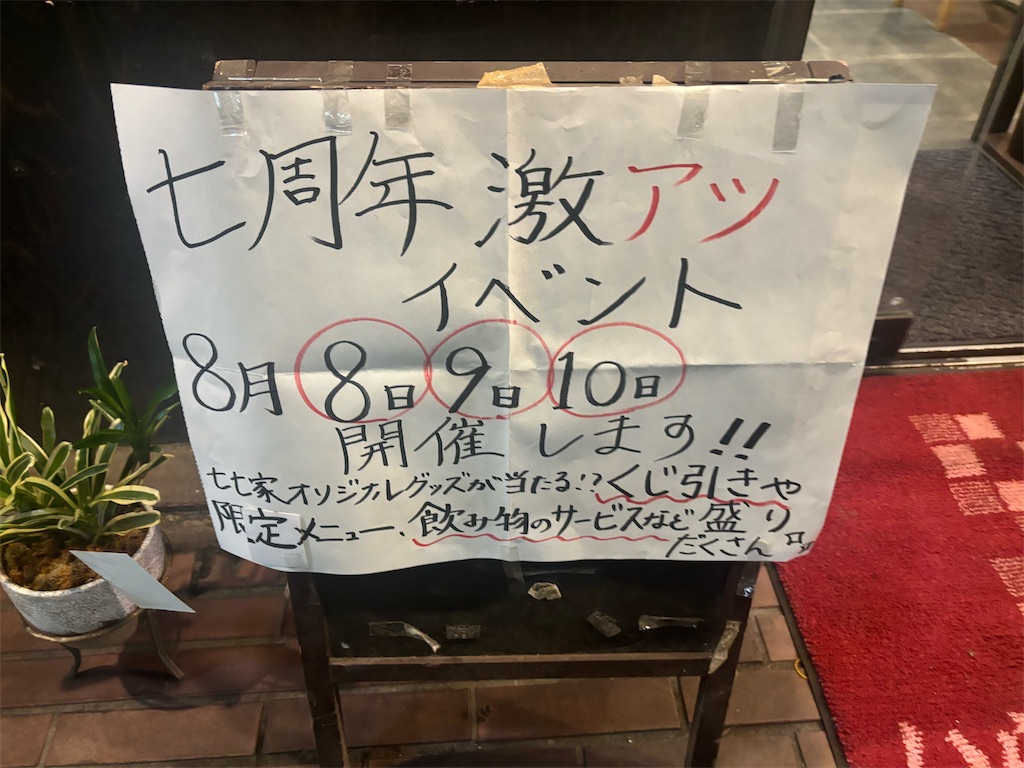 七周年 激アツ
イベント
8月 8日 9日 10日
開催します!!
七七家オリジナルグッズが当たる!?くじ引きや
限定メニュー、飲み物のサービスなど盛り
だくさん